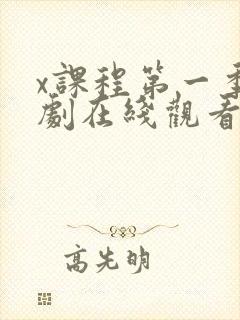 x課程第一季
劇在綫觀看
高先明